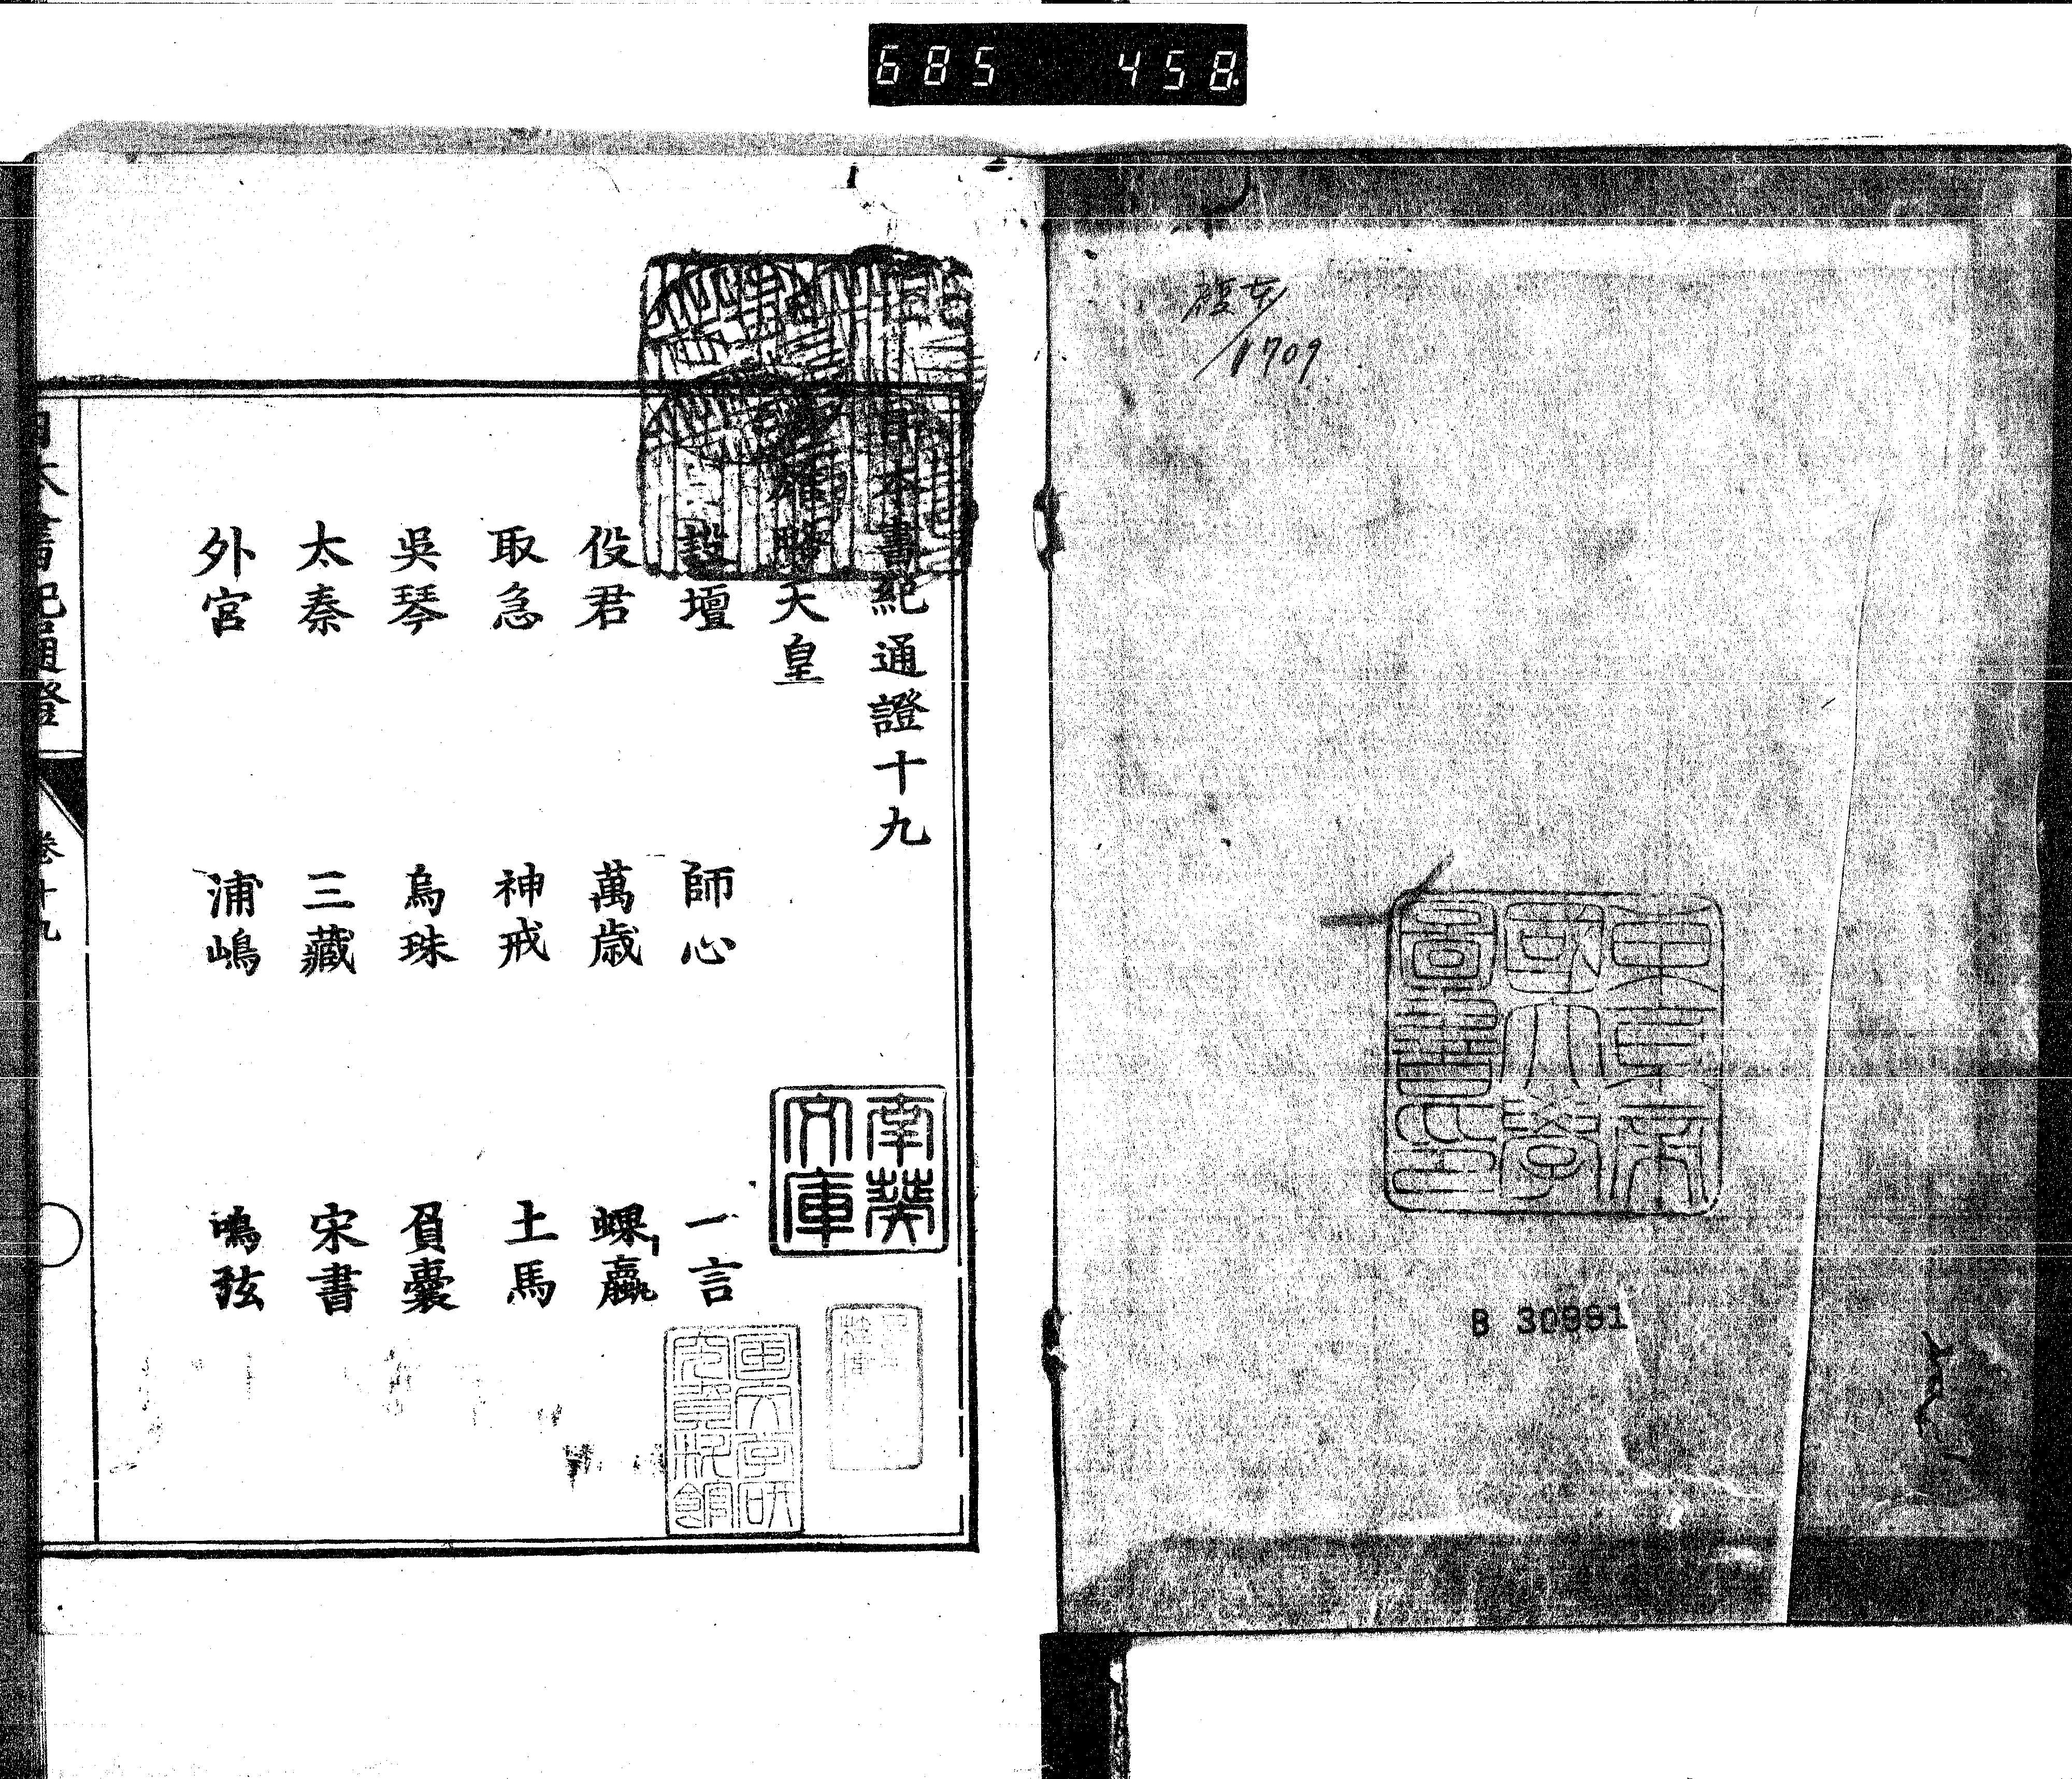 685 458
1709
東京帝
國大學
圖書印
B 30991
日本書紀通證十九
雄略天皇
設壇 師心 一言
役君 萬歳 蜾蠃
取急 神戒 土馬
吳琴 烏珠 負囊
太秦 三藏 宋書
外宮 浦嶋 鳴弦
南葵
文庫
日本書紀通證 卷十九